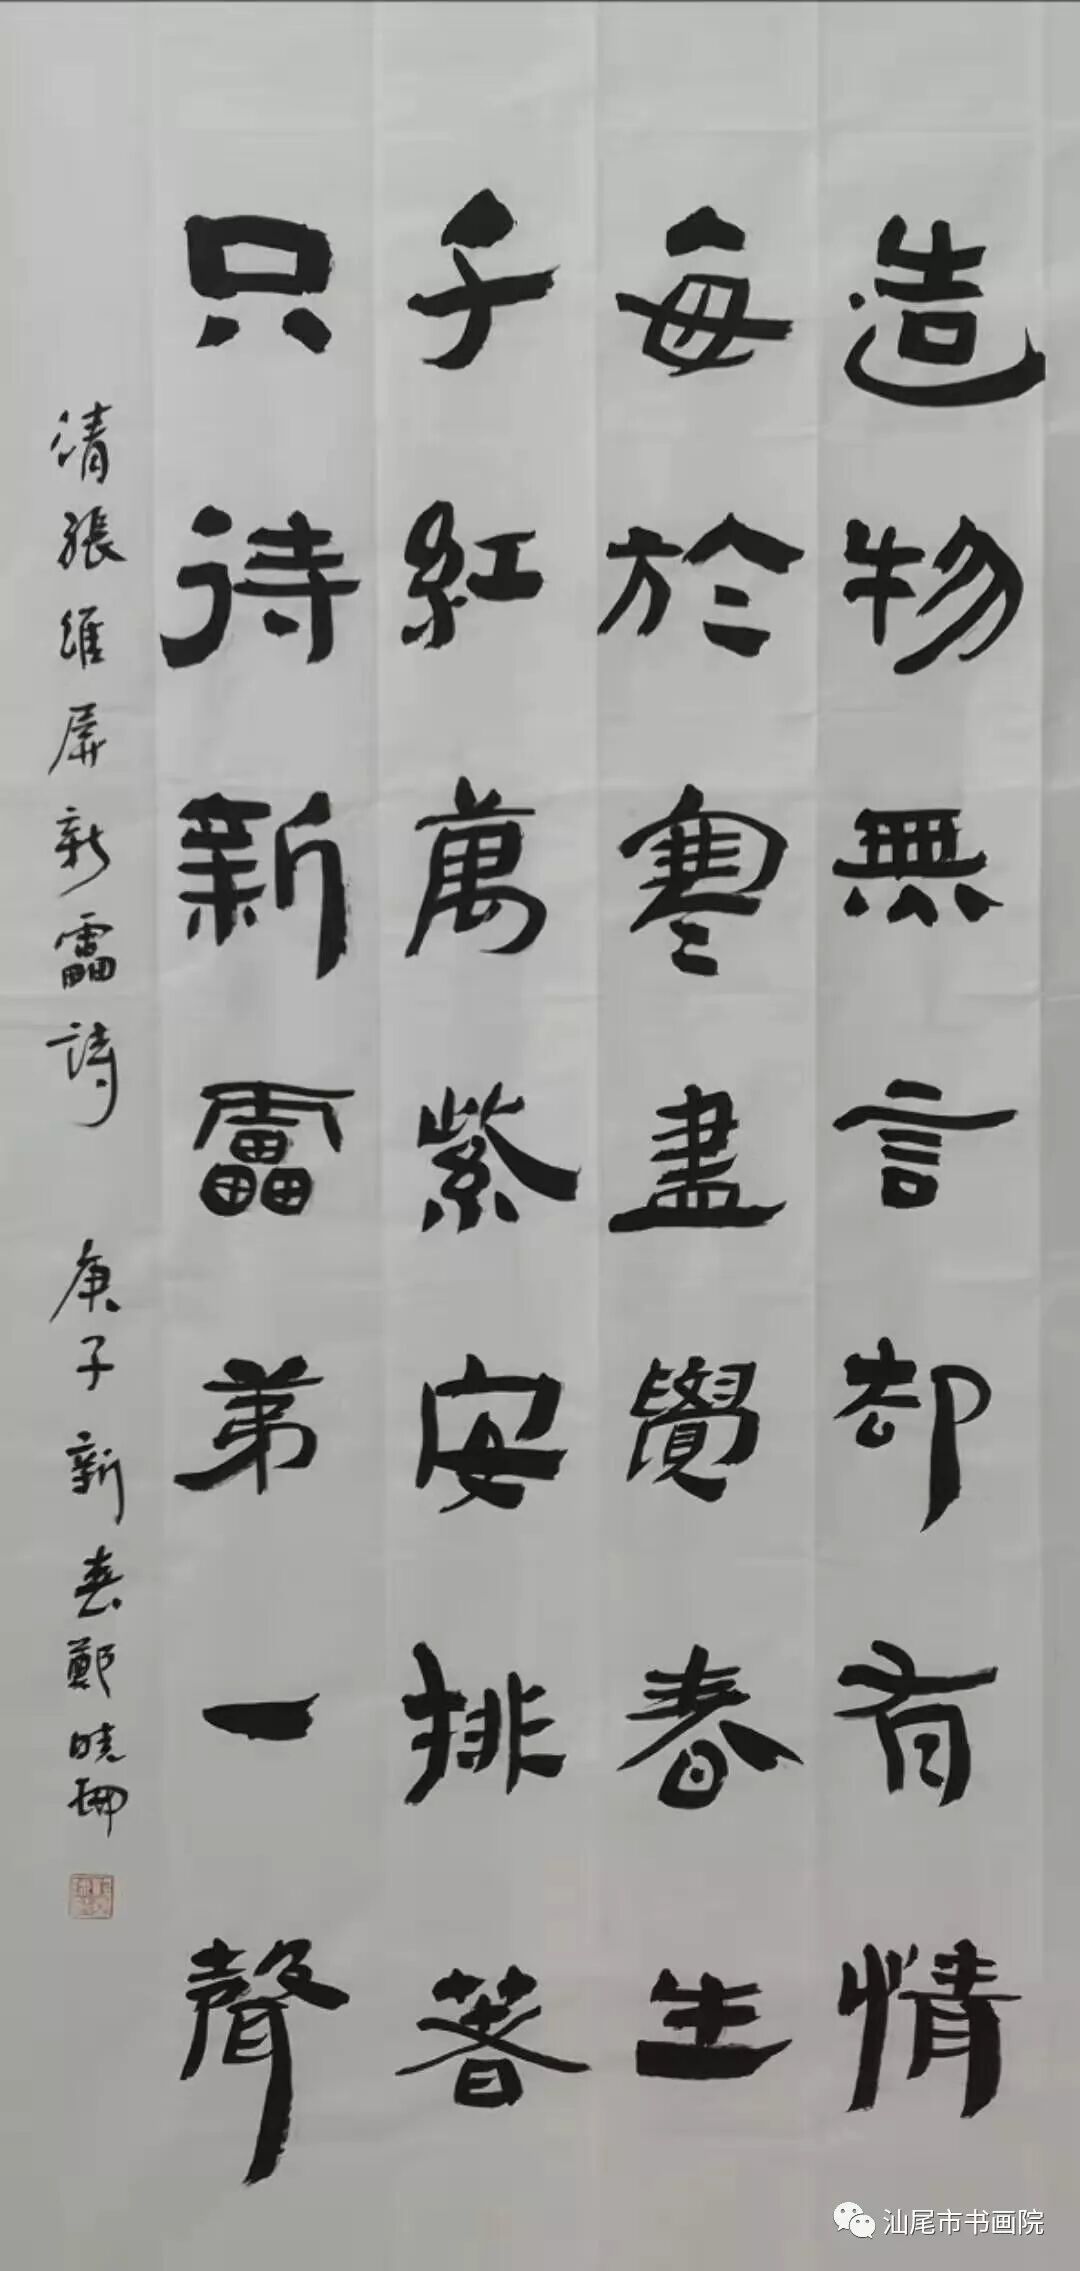 造物無言却有情
每於寒盡覺春生
千紅萬紫安排著
只待新靁弟一聲
清張維屏新靁詩 庚子新春鄭曉珊
汕尾市书画院